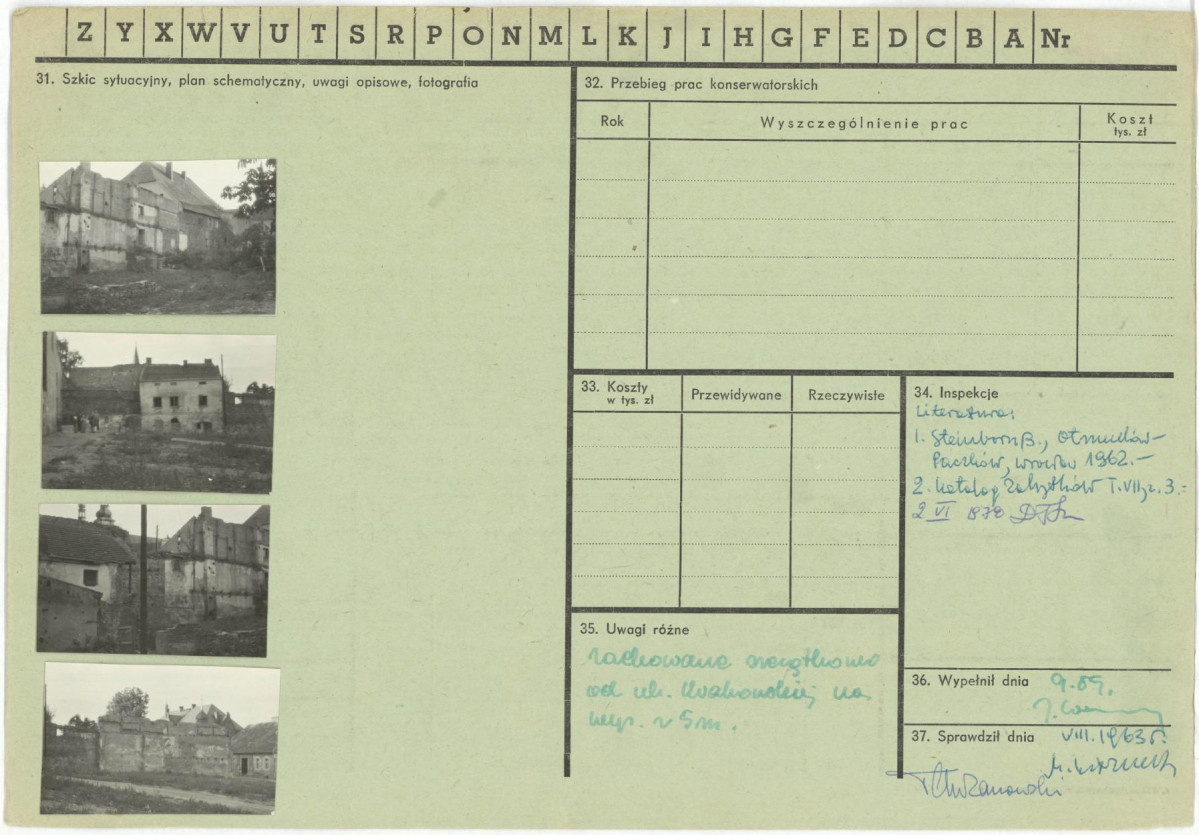 Z Y X W V U T S R P O N M L K J I H G F E D C B A Nr
31. Szkic sytuacyjny, plan schematyczny, uwagi opisowe, fotografia
32. Przebieg prac konserwatorskich
Rok
Wyszczególnienie prac
Koszt
tys. zł
33. Koszty
w tys. zł
Przewidywane
Rzeczywiste
34. Inspekcje
Literatura:
1. Steinborn B., Otmuchów-
Paczków, Wrocław 1962.-
2. Katalog Zabytków T. VII, z. 3.=
2 VI 1978
35. Uwagi różne
zachowane szczątkowo
od ul. Krakowskiej na
wys. ~ 5m.
36. Wypełnił dnia 9.59.
37. Sprawdził dnia VIII.1963 r.